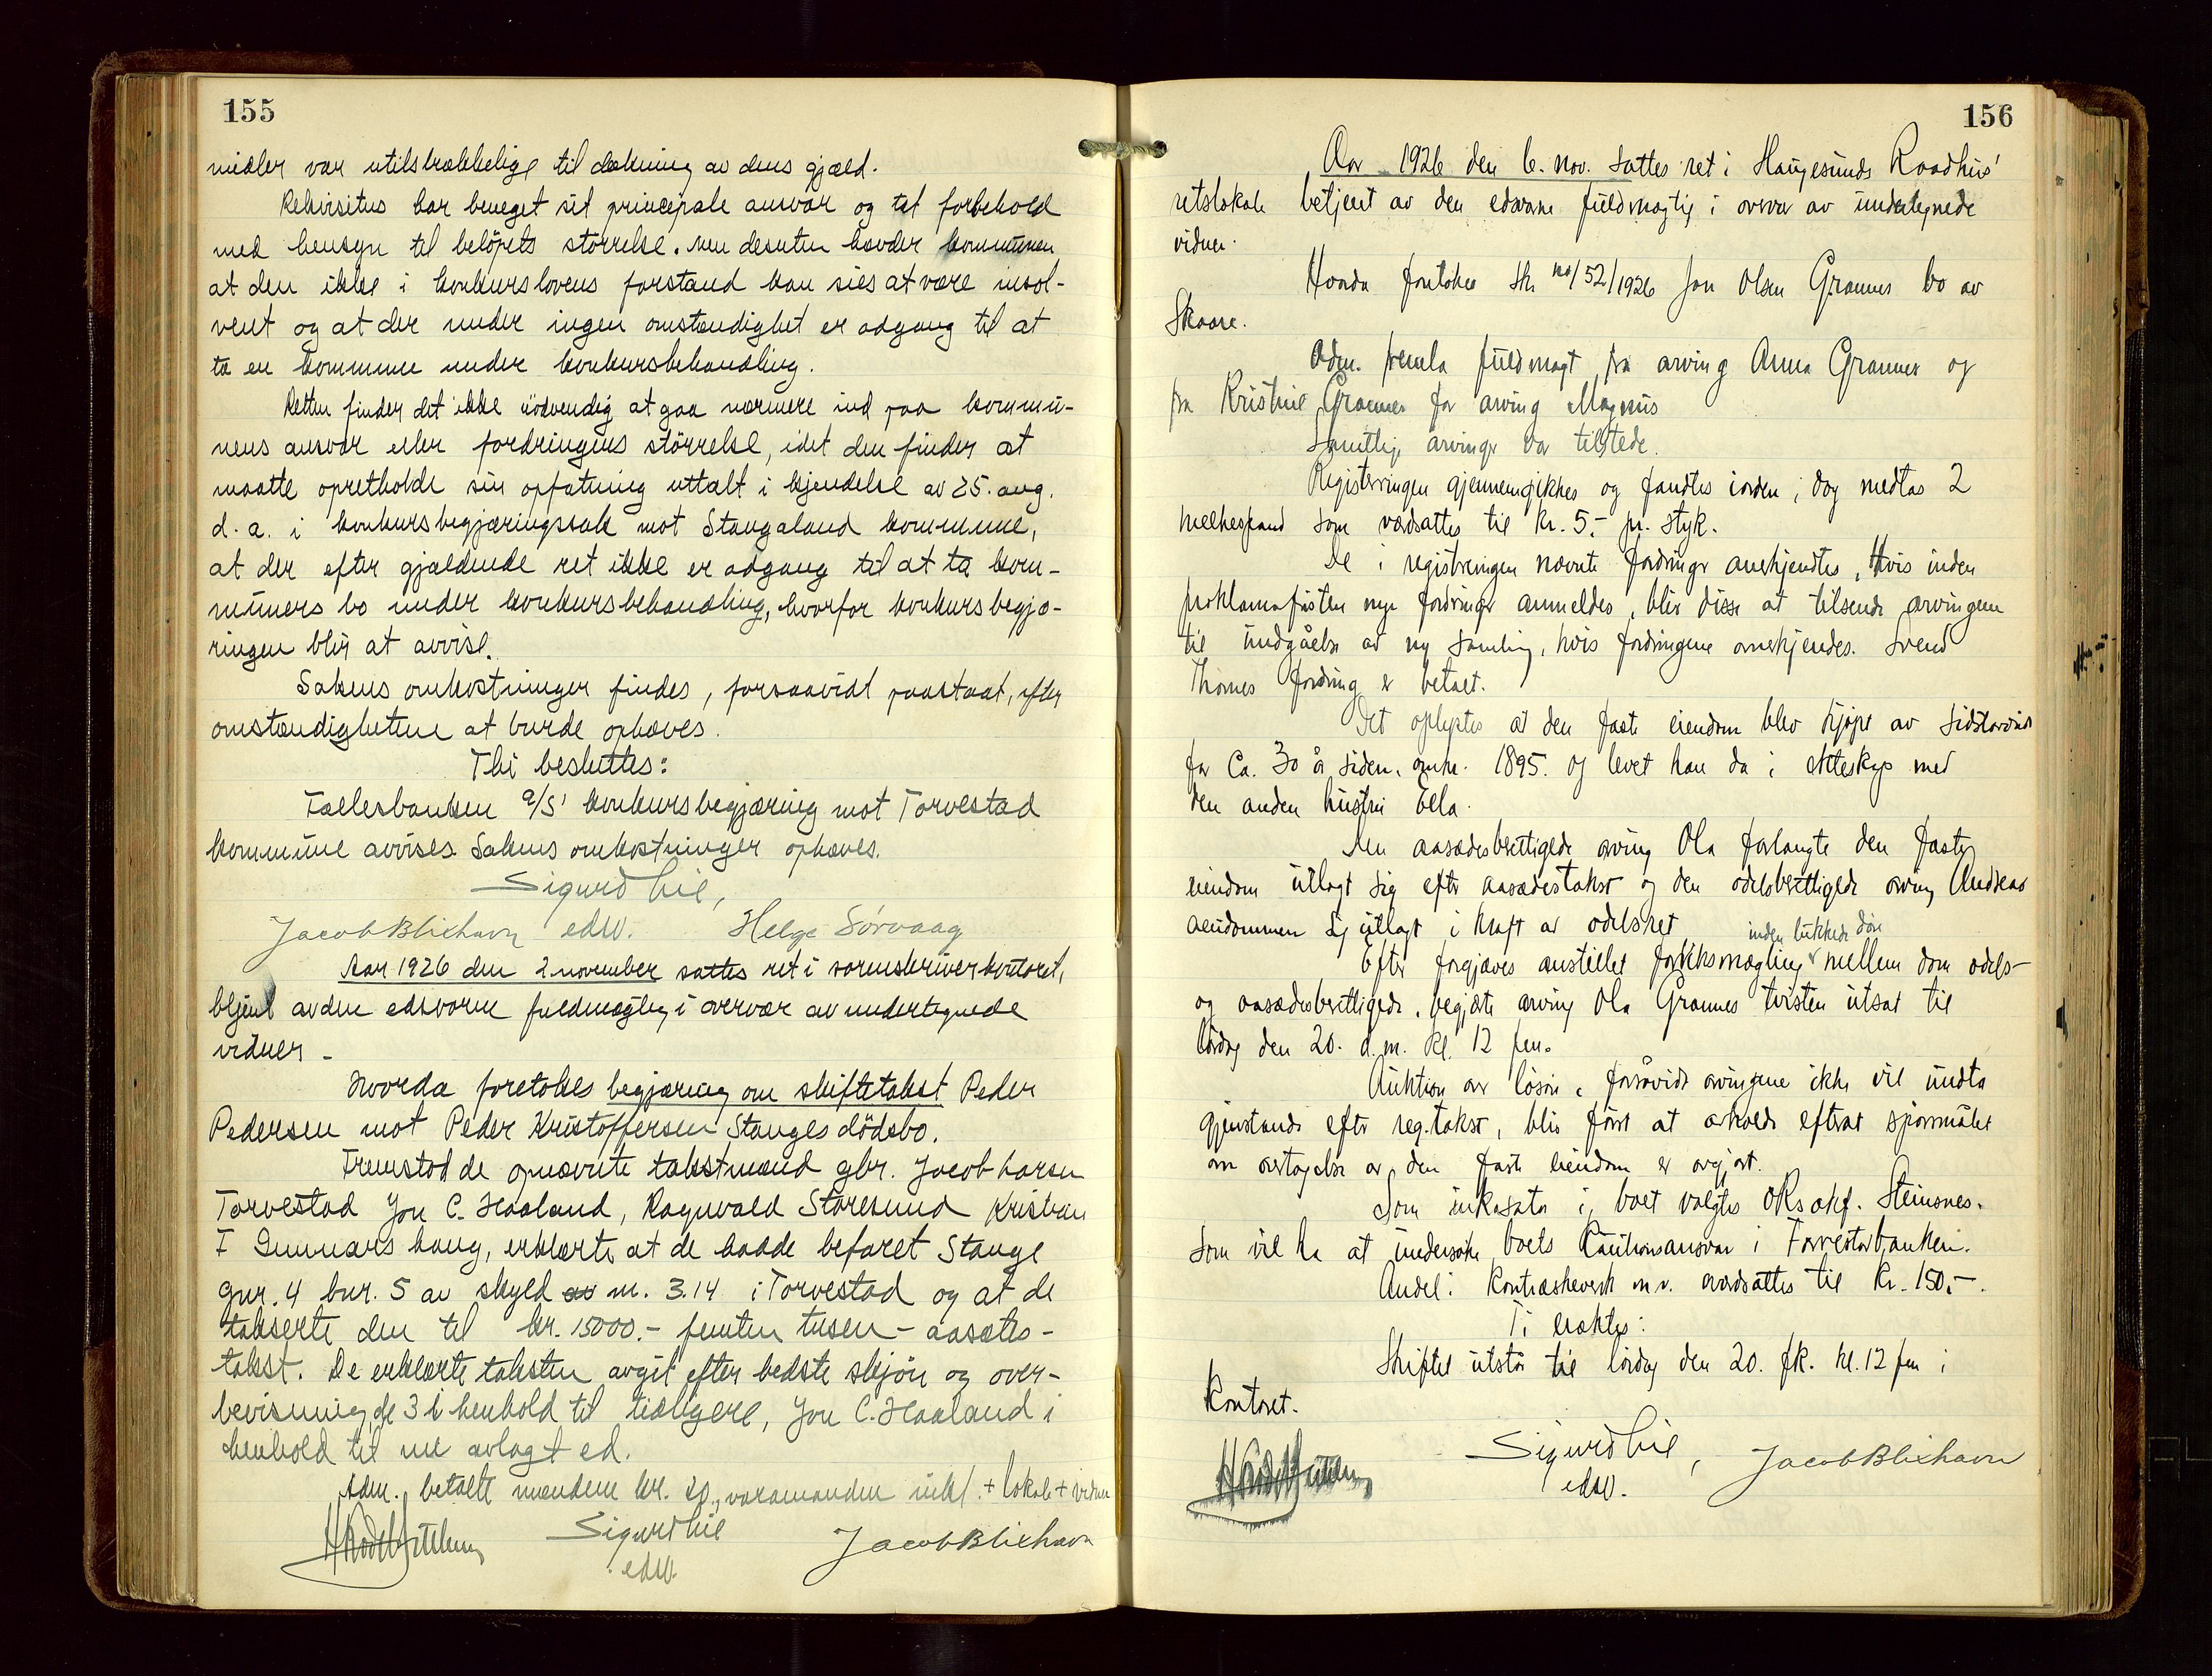 155
midler var utilstrækkelige til dækning av dens gjæld.
Rekvisitus har benegtet sit principale ansvar og tat forbehold
med hensyn til beløpets størrelse. Men desuten hævder kommunen
at den ikke i konkurslovens forstand kan sies at være insol-
vent og at der under ingen omstændighet er adgang til at
ta en kommune under konkursbehandling.
Retten finder det ikke nödvendig at gaa nærmere ind paa kommu-
nens ansvar eller fordringens störrelse, idet den finder at
maatte opretholde sin opfatning uttalt i kjendelse av 25. aug.
d. a. i konkursbegjæringssak mot Stangaland kommune,
at der efter gjældende ret ikke er adgang til at ta kom-
muners bo under konkursbehandling, hvorfor konkursbegjæ-
ringen blir at avvise.
Sakens omkostninger findes, forsaavidt paastaat, efter
omstændigheterne at burde ophæves.
Thi besluttes:
Fællesbanken A/S' konkursbegjæring mot Torvestad
kommune avvises. Sakens omkostninger ophæves.
Sigurd Lie,
Jacob Blixhavn edsv. Helge Sörvaag
Aar 1926 den 2 november sattes ret i sorenskriverkontoret,
betjent av den edsvorne fuldmægtig i overvær av undertegnede
vidner -
Hvorda foretokes begjæring om skiftetakst Peder
Pedersen mot Peder Kristoffersen Stanges dödsbo.
Fremstod de opnævnte takstmænd gbr. Jacob Larsen
Torvestad Jon C. Haaland, Ragnvald Storesund Kristian
F Gunnarshaug, erklærte at de hadde befaret Stange
gnr. 4 bnr. 5 av skyld av m. 3.14 i Torvestad og at de
takserte den til kr. 15000.- femten tusen - aasætes-
takst. De erklærte taksten avgit efter bedste skjön og over-
bevisning, de 3 i henhold til tidligere, Jon C. Haaland i
henhold til nu avlagt ed.
Adm. betalte mændene kr. 20, varamanden inkl. + lokale + vidner
Sigurd Lie Jacob Blixhavn
edsv.
156
Aar 1926 den 6. nov. sattes ret i Haugesunds Raadhus'
retslokale betjent av den edsvorne fuldmægtig i overvær av undertegnede
vidner.
Hvorda foretokes Sk no/52/1926 Jon Olsen Grannes bo av
Skaare.
Adm. fremla fuldmagt fra arving Anna Grannes og
fra Kristine Grannes for arving Magnus
Samtlige arvinger var tilstede.
Registreringen gjennemgikkes og fandtes iorden; dog medtas 2
melkespand som værdsattes til kr. 5.- pr. styk.
De i registreringen nævnte fordringer anerkjendtes, Hvis inden
proklamafristen nye fordringer anmeldes, blir disse at tilsende arvingene
til undgåelse av ny samling, hvis fordringene anerkjendes. Svend
Thomes fordring er betalt.
Det oplystes at den faste eiendom blev kjøpt av sidstavdøde
for ca. 30 år siden, omkr. 1895. og levet han da i ekteskap med
den anden hustru Ella.
Den aasædesberettigede arving Ola forlangte den faste
eiendom utlagt sig efter aasædestakst og den odelsberettigede arving Andreas
aeiendommen sig utlagt i kraft av odelsret
inden lukkede döre
Efter forgjæves anstillet forliksmægling mellem dom odels-
og aasædesberettigede, begjærte arving Ola Grannes tvisten utsat til
lördag den 20. d. m. kl. 12 fm.
Auktion over lösöre, forsåvidt arvingene ikke vil undta
gjenstande efter reg.takst, blir först at avholde efterat spörsmålet
om overtagelse av den faste eiendom er avgjort.
Som inkassator i boet valgtes Oks akf. Steinsnes.
Som vil ha at undersöke boets kautionsansvar i Torvestadbanken.
Andel i kontraskeverk m.v. værdsattes til kr. 150.-.
Ti eraktes:
Skiftet utstår til lördag den 20. fk. kl. 12 fm i
Kontoret.
Sigurd Lie, Jacob Blixhavn
edsv.